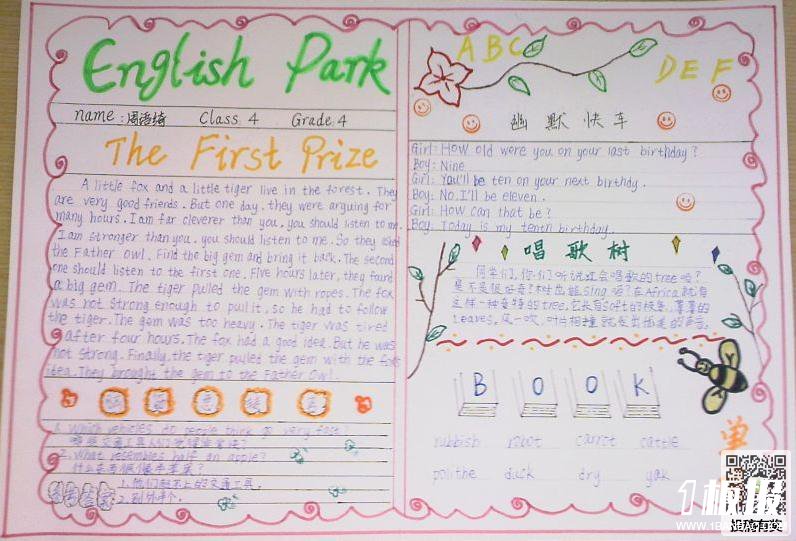 English Park
name: 周语绮 Class 4 Grade 4
The First Prize
A little fox and a little tiger live in the forest. They
are very good friends. But one day. they were arguing for
many hours. I am far cleverer than you. you should listen to me.
I am stronger than you. you should listen to me. So they asked
the Father Owl. Find the big gem and bring it back. The second
one should listen to the first one. Five hours later, they found
a big gem. The tiger pulled the gem with ropes. The fox
was not strong enough to pull it, so he had to follow
the tiger. The gem was too heavy. The tiger was tired
after four hours. The fox had a good idea. But he was
not strong. Finally, the tiger pulled the gem with the fox's
idea. They brought the gem to the Father Owl.
1. Which vehicles do people think go very fast?
哪些交通工具人们觉得非常快?
2. What resembles half an apple?
什么东西很像半苹果?
1. 他们赶不上的交通工具.
2. 另外半个.
A B C
D E F
幽默快车
Girl: How old were you on your last birthday?
Boy: Nine.
Girl: You'll be ten on your next birthdy.
Boy: No. I'll be eleven.
Girl: How can that be?
Boy: Today is my tenth birthday.
唱歌树
同学们,你们听说过会唱歌的tree吗?
是不是很好奇?树也能sing吗?在Africa就有
这样一种奇特的tree,它长有soft的枝条,薄薄的
leaves,风一吹,叶片相撞就发出
的声音。
B O O K
rubbish robot carrot cattle
polithe duck dry yak
1板报
WWW.1BANBAO.COM